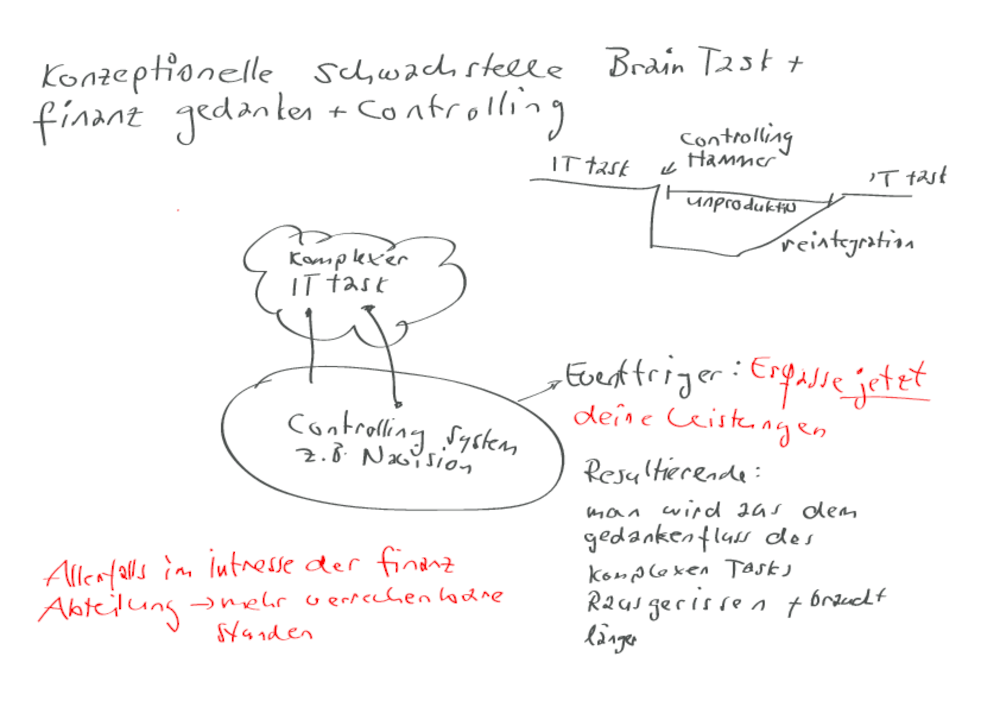 Konzeptionelle Schwachstelle Brain Task +
finanz gedanken + Controlling
Controlling
Hammer
IT task
IT task
unproduktiv
reintegration
Komplexer
IT task
Controlling System
z.B. Navision
Eventtriger: Erfasse jetzt
deine Leistungen
Resultierende:
man wird aus dem
gedankenfluss des
Komplexen Tasks
Rausgerissen + braucht
länger
Allenfalls im Intresse der finanz
Abteilung → mehr verrechenbare
Stunden